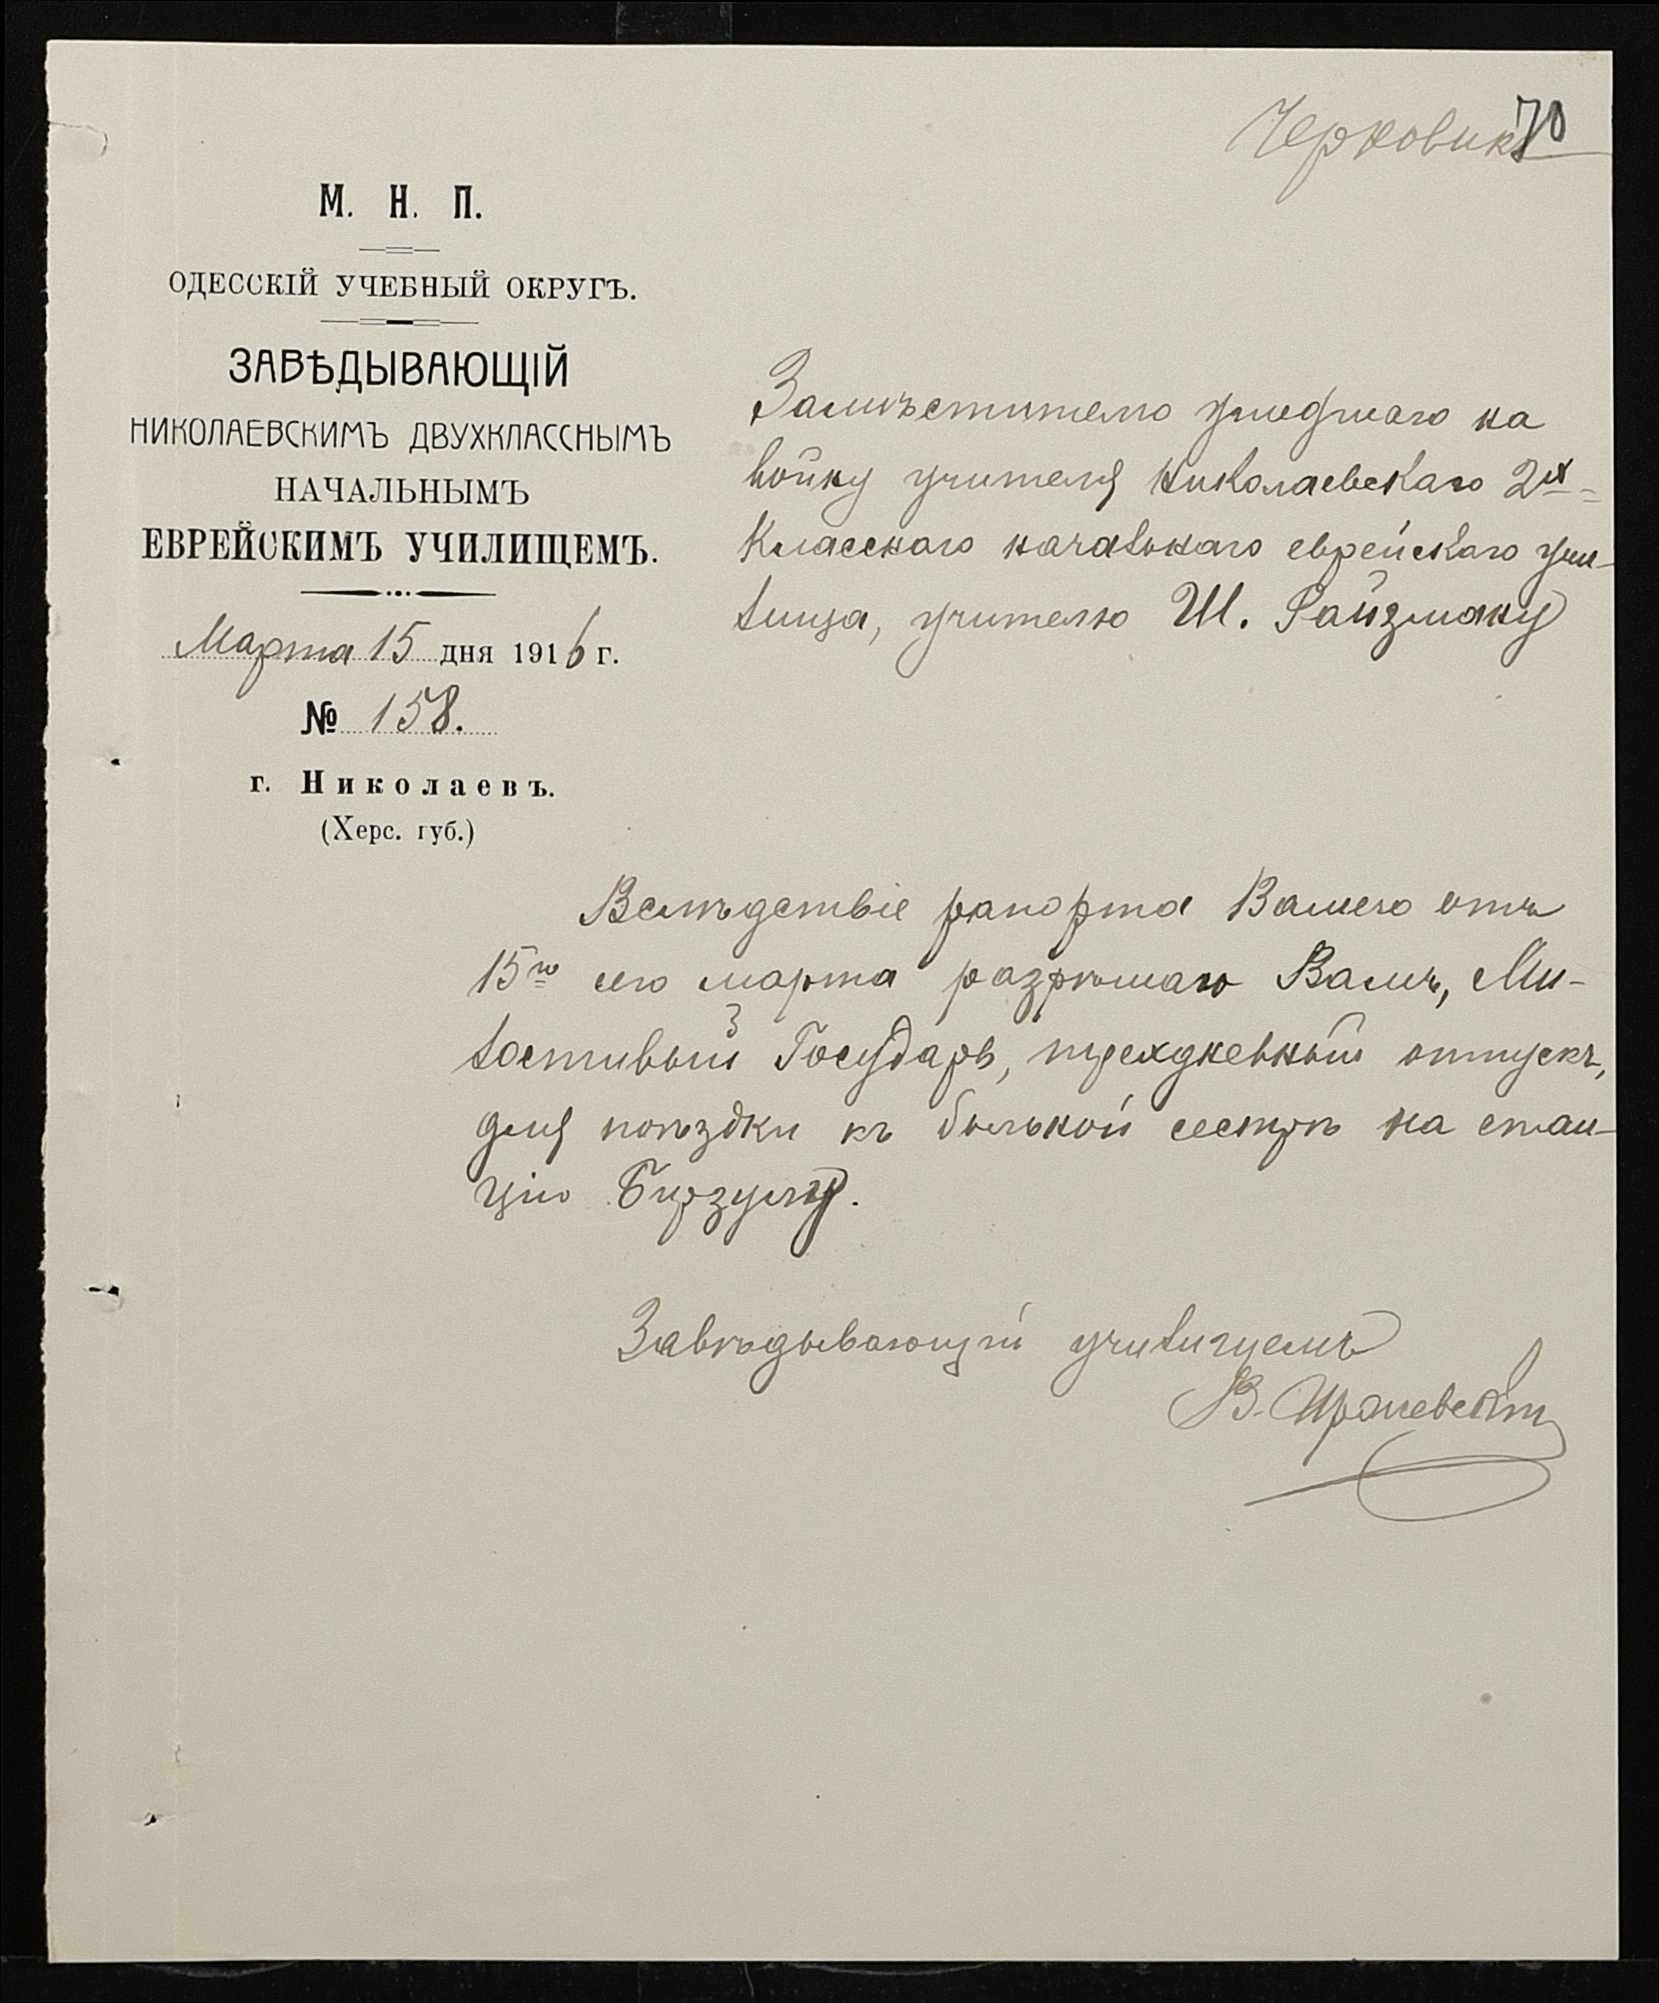 Черновикъ
70
М. Н. П.
ОДЕССКІЙ УЧЕБНЫЙ ОКРУГЪ.
ЗАВѢДЫВАЮЩІЙ
НИКОЛАЕВСКИМЪ ДВУХКЛАССНЫМЪ
НАЧАЛЬНЫМЪ
ЕВРЕЙСКИМЪ УЧИЛИЩЕМЪ.
Марта 15 дня 1916 г.
№ 158.
г. Николаевъ.
(Херс. губ.)
Замѣстителю ушедшаго на
войну учителя Николаевскаго 2х=
класснаго начальнаго еврейскаго учи-
лища, учителю Ш. Райзману
Вслѣдствіе рапорта Вашего отъ
15го сего марта разрѣшаю Вамъ, Ми-
лостивый Государь, трехдневный отпускъ,
для поѣздки къ больной сестрѣ на стан-
цію Бирзулу.
Завѣдывающій училищемъ
В.